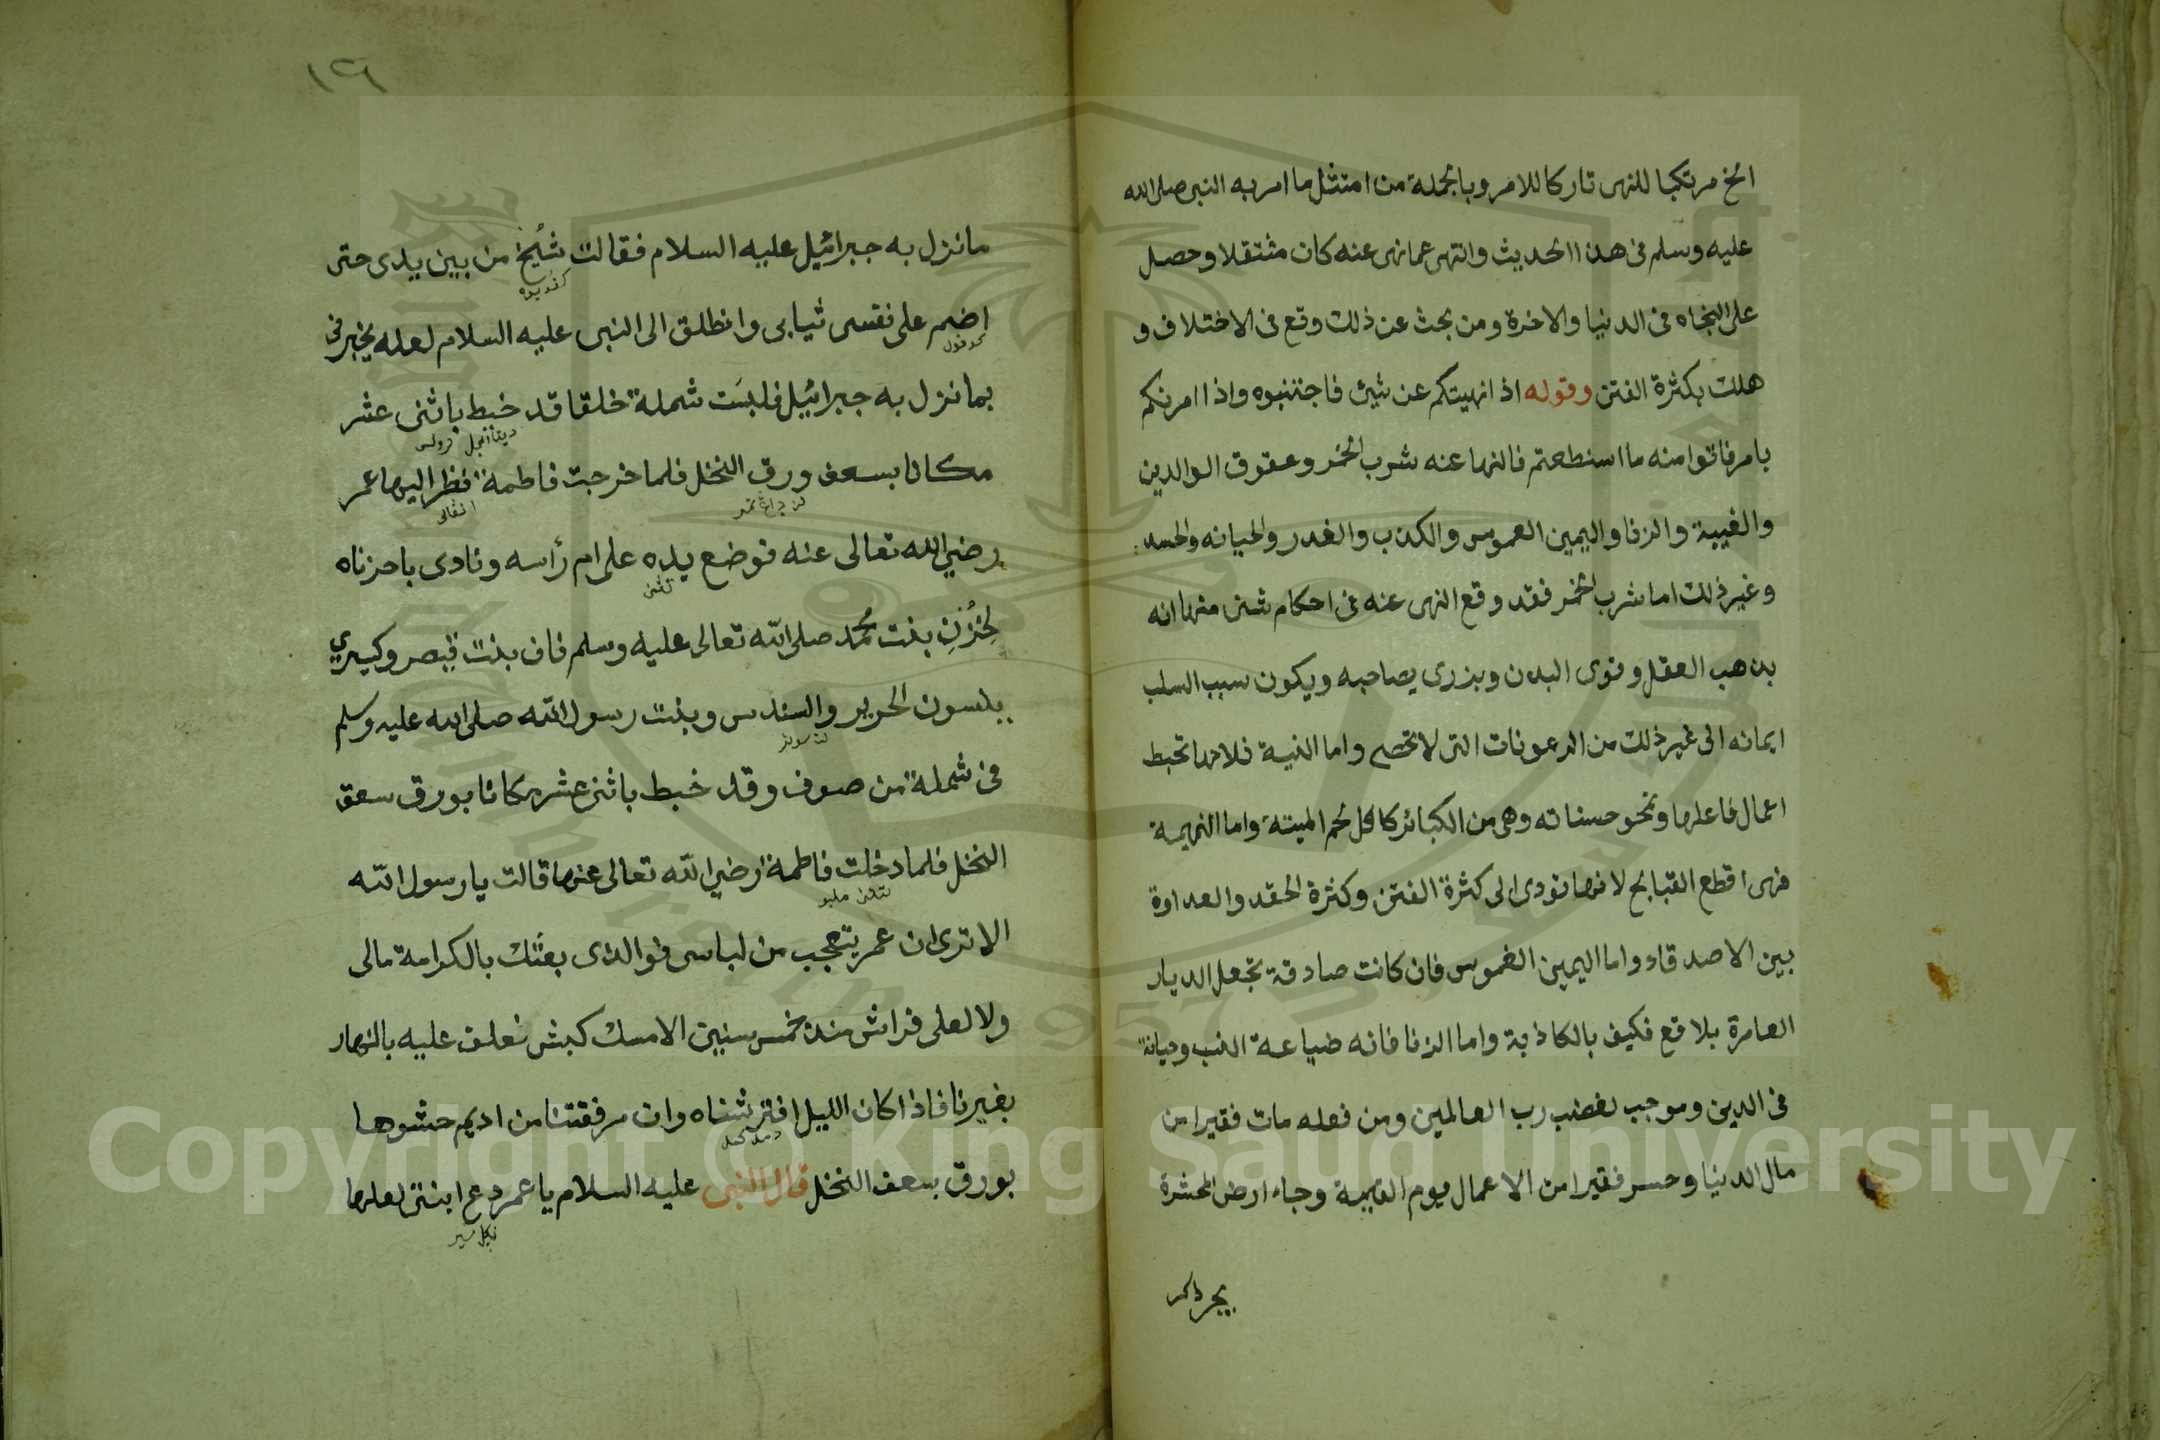 الخ مرتكبا للنهى تاركا للامر وبالجملة من امتثل ما امر به النبى صلى الله
عليه وسلم فى هذا الحديث وانتهى عما نهى عنه كان متثقلا وحصل
على النجاه فى الدنيا والاخرة ومن بحث عن ذلك وقع فى الاختلاف و
هلك بكثرة الفتن وقوله اذ انهيتكم عن شيئ فاجتنبوه واذا امرتكم
بامر فاتوا منه ما استطعتم فالنهى عنه شرب الخمر وعقوق الوالدين
والغيبة والزنا واليمين الغموس والكذب والغدر والخيانه والحسد
وغير ذلك اما شرب الخمر فقد وقع النهى عنه فى احكام شتى منها انه
يذهب العقل وقوى البدن ويزرى بصاحبه ويكون سبب السلب
ايمانه الى غير ذلك من الرعونات التى لا تحصى واما الغيبة فلانها تحبط
اعمال فاعلها وتمحو حسناته وهى من الكبائر كاكل لحم الميتة واما النميمة
فهى اقطع القبايح لانها تودى الى كثرة الفتن وكثرة الحقد والعداوة
بين الاصدقاء واما اليمين الغموس فان كانت صادقة تجعل الديار
العامرة بلاقع فكيف بالكاذبة واما الزنا فانه ضياعة النسب وخيانة
فى الدين وموجب لغضب رب العالمين ومن فعله مات فقيرا من
مال الدنيا وحسر فقيرا من الاعمال يوم القيمة وجاء ارض المحشرة
١٢٦
ما نزل به جبرائيل عليه السلام فقالت شيخ من بين يدى حتى
اضم على نفسى ثيابى وانطلق الى النبى عليه السلام لعله يخبرنى
بما نزل به جبرائيل فلبست شملة خلقا قد خيط باثنى عشر
مكانا بسعف ورق النخل فلما خرجت فاطمة نظر اليها عمر
رضي الله تعالى عنه فوضع يده على ام رأسه ونادى باحزناه
لحزن بنت محمد صلى الله تعالى عليه وسلم فان بنت قيصر وكيسري
يبلسون الحرير والسندس وبنت رسول الله صلى الله عليه وسلم
فى شملة من صوف وقد خيط باثنى عشر مكانا بورق سعف
النخل فلما دخلت فاطمة رضي الله تعالى عنها قالت يا رسول الله
الا ترى ان عمر يتعجب من لباسى فوالذى بعثك بالكرامة مالى
ولا لعلى فراش منذ خمس سنين الا مسك كبش نعلف عليه بالنهار
بغيرنا فاذا كان الليل افترشناه وان مرفقتنا من اديم حشوها
بورق سعف النخل قال النبى عليه السلام يا عمر دع ابنتى لعلها
Copyright © King Saud University
1957